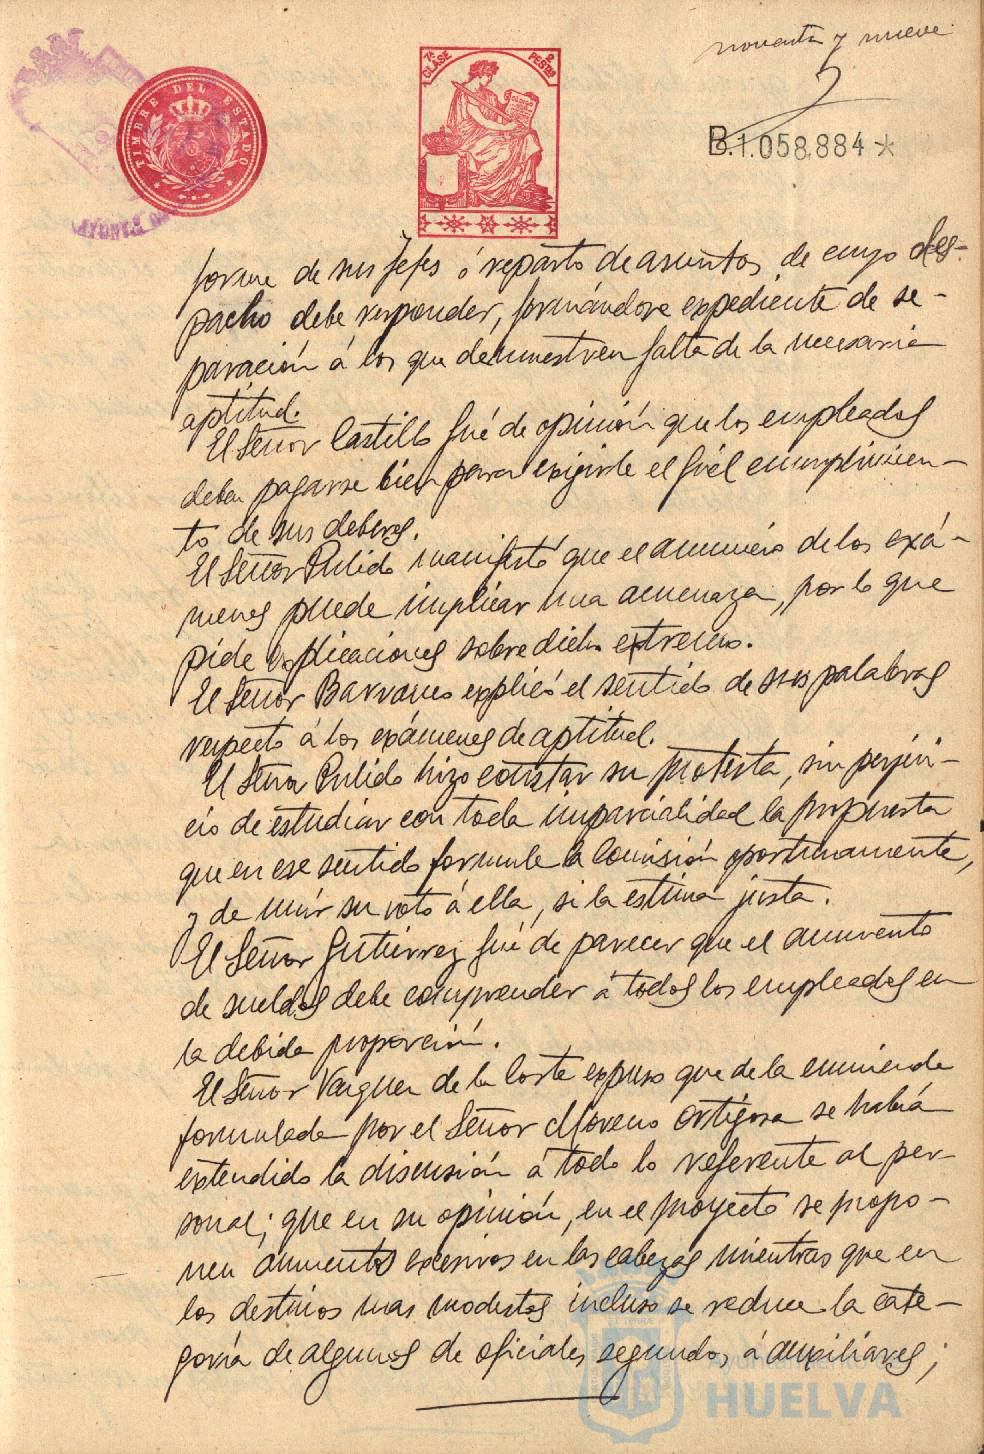 noventa y nueve
TIMBRE DEL ESTADO
7ª CLASE 2 PESTAS
B.1.058.884*
forme de sus Jefes ó reparto de asuntos, de cuyo des-
pacho debe responder, formándose expediente de se-
paración á los que demuestren falta de la necesaria
aptitud.
El Señor Castillo fué de opinión que los empleados
deben pagarse bien para exigirle el fiel cumplimien-
to de sus deberes.
El Señor Pulido manifestó que el anuncio de los exá-
menes puede implicar una amenaza, por lo que
pide explicaciones sobre dicho extremo.
El Señor Barranco explicó el sentido de sus palabras
respecto á los exámenes de aptitud.
El Señor Pulido hizo constar su protesta, sin perjui-
cio de estudiar con toda imparcialidad la propuesta
que en ese sentido formule la Comisión oportunamente,
y de unir su voto á ella, si la estima justa.
El Señor Gutiérrez fué de parecer que el aumento
de sueldos debe comprender á todos los empleados en
la debida proporción.
El Señor Vazquez de la Corte expuso que de la enmienda
formulada por el Señor Moreno Ortigosa se había
extendido la discusión á todo lo referente al per-
sonal; que en su opinión, en el proyecto se propo-
nen aumentos excesivos en las cabezas mientras que en
los destinos mas modestos incluso se reduce la cate-
goría de algunos de oficiales segundos, á auxiliares;
HUELVA